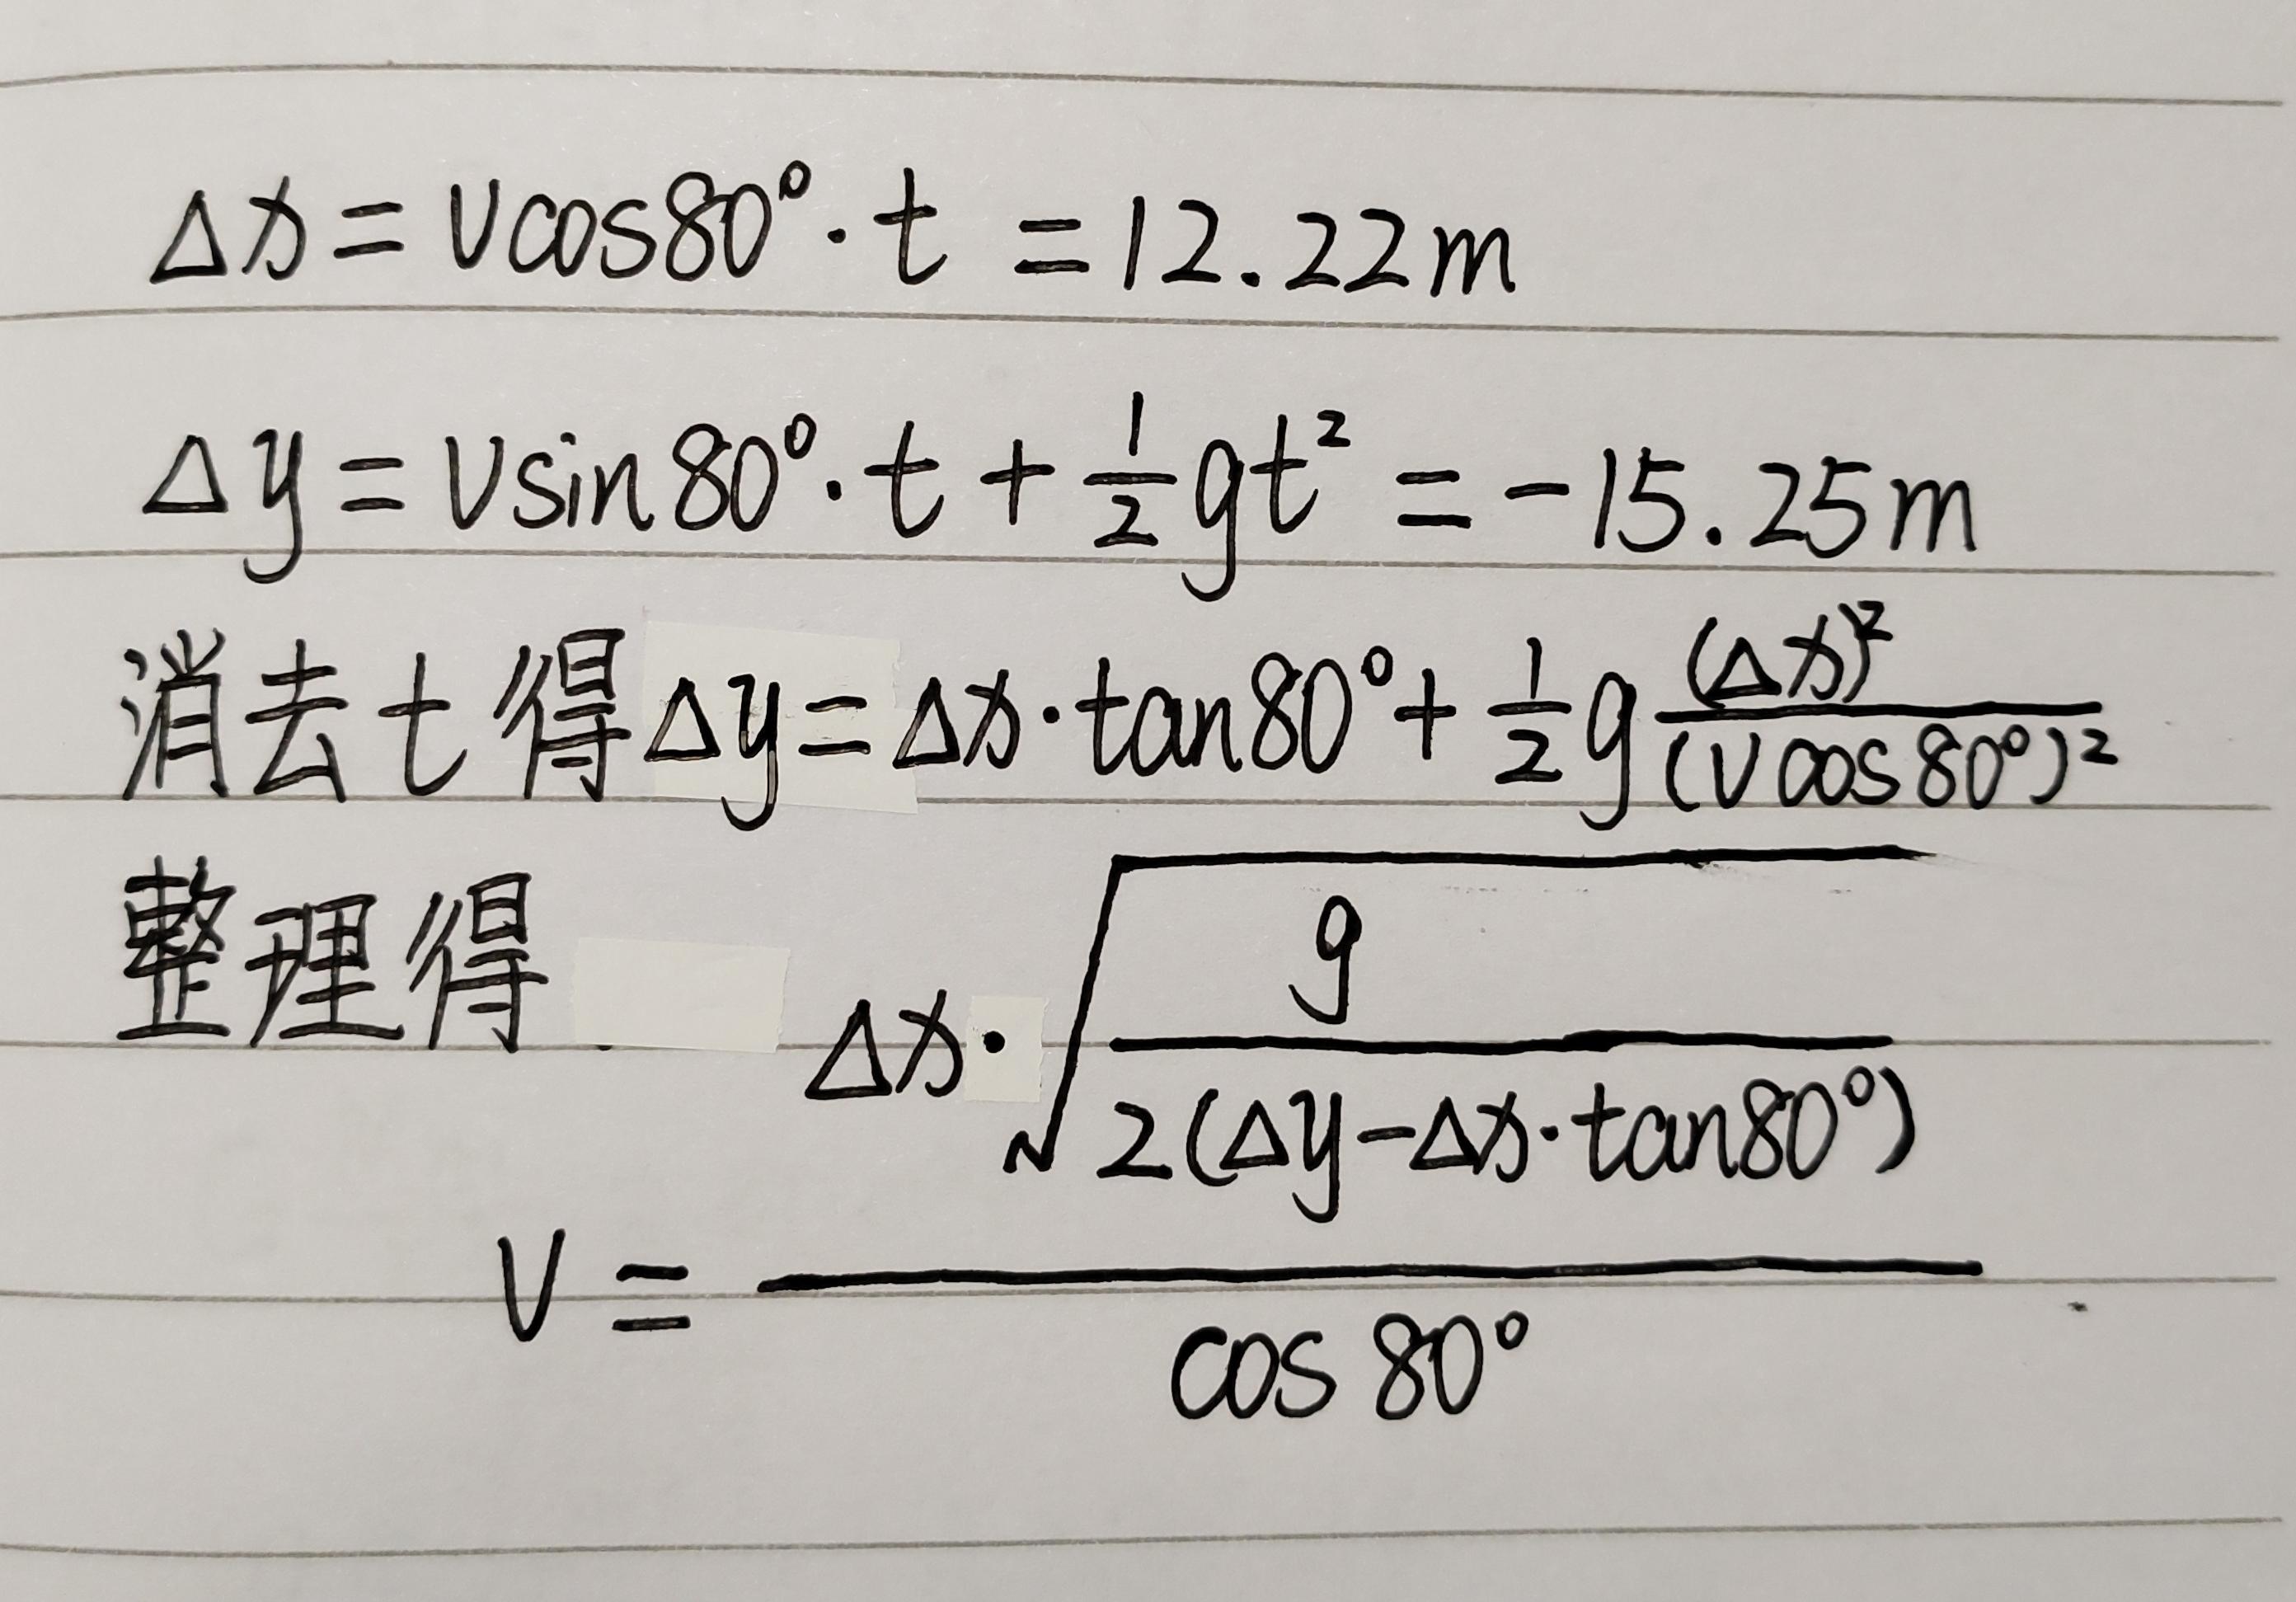 Δx = Vcos80°·t = 12.22m
Δy = Vsin80°·t + 1/2 gt² = -15.25m
消去t得Δy = Δx·tan80° + 1/2 g (Δx)²/(Vcos80°)²
整理得
V = Δx·√(g/(2(Δy-Δx·tan80°))) / cos80°